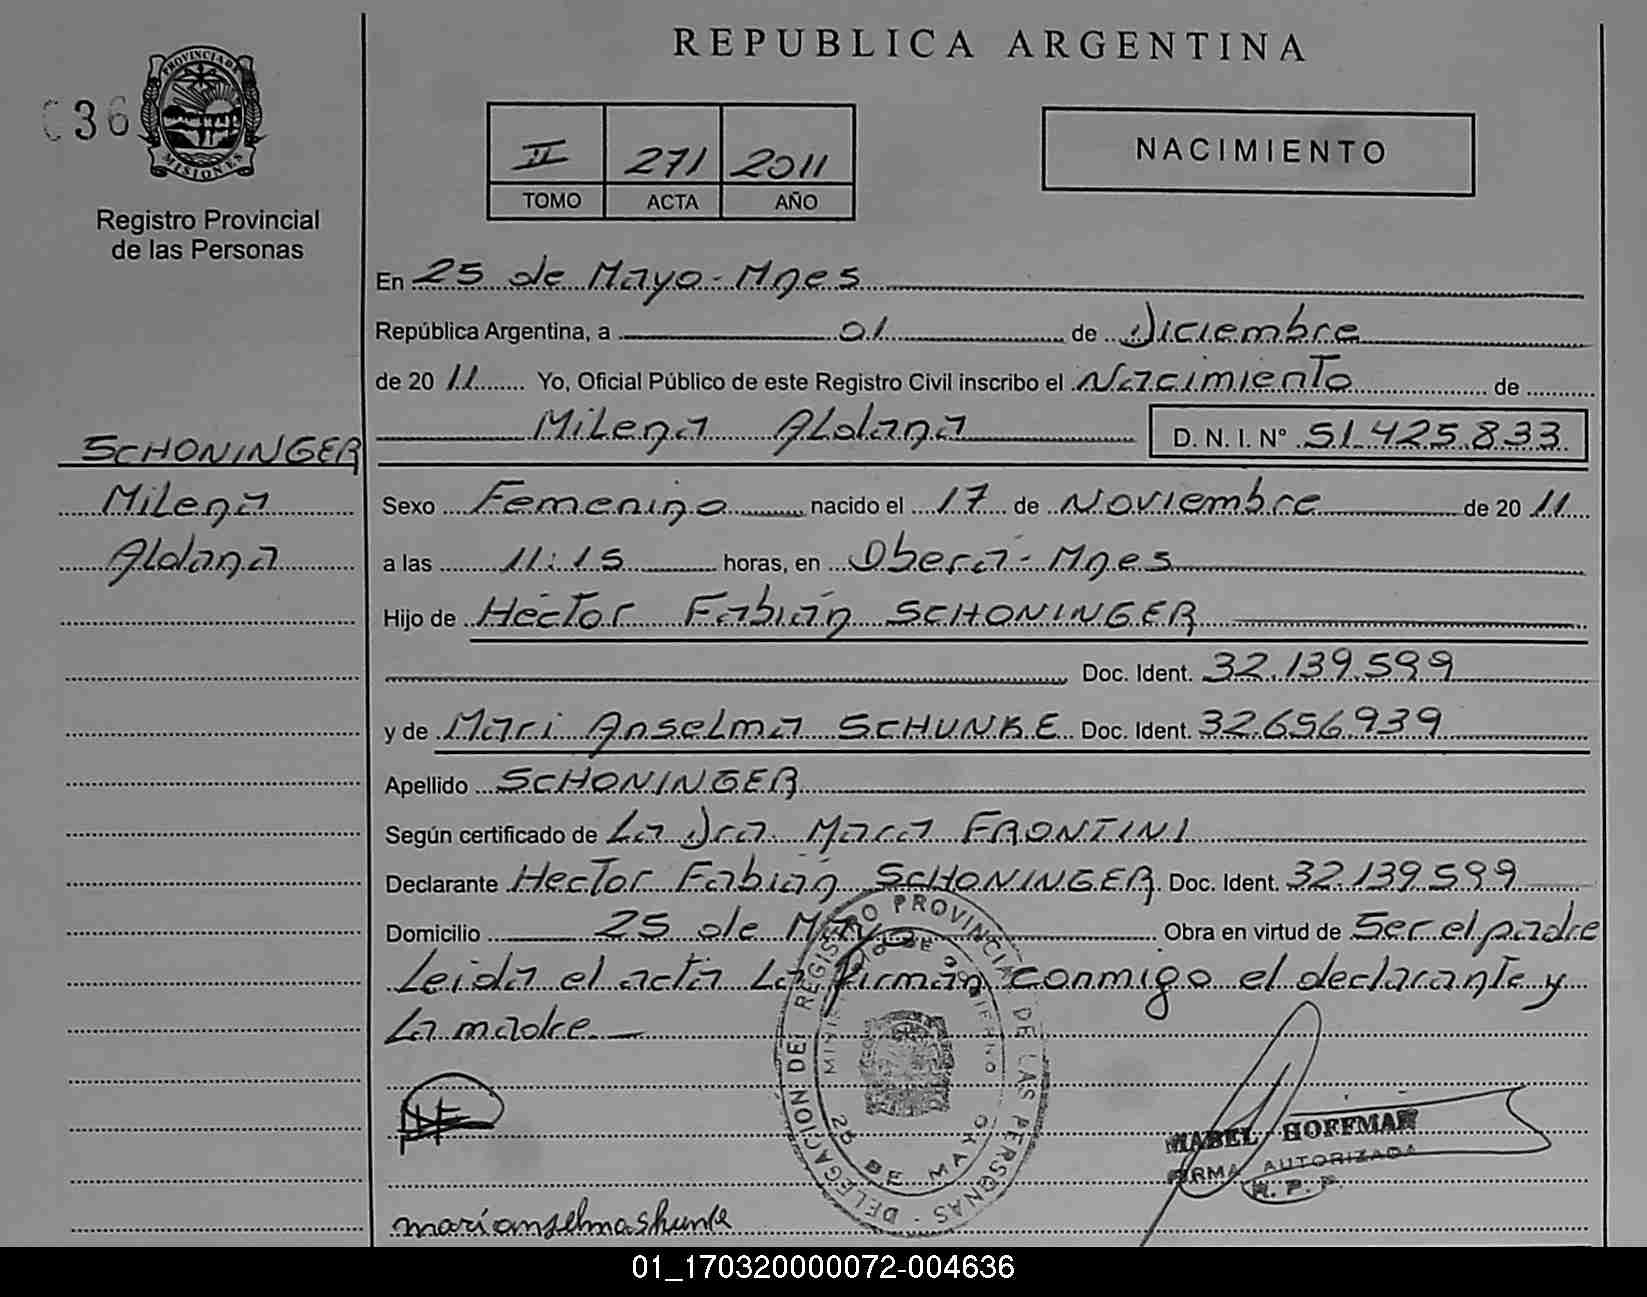 REPUBLICA ARGENTINA
036
PROVINCIA DE
MISIONES
Registro Provincial
de las Personas
II 271 2011
TOMO ACTA AÑO
NACIMIENTO
En 25 de Mayo - Mnes
República Argentina, a 01 de Diciembre
de 20 11 Yo, Oficial Público de este Registro Civil inscribo el Nacimiento de
Milena Aldana D. N. I. N° 51.425.833
SCHONINGER
Milena
Aldana
Sexo Femenino nacido el 17 de Noviembre de 20 11
a las 11:15 horas, en Oberá - Mnes
Hijo de Héctor Fabián SCHONINGER
Doc. Ident. 32.139.599
y de Mari Anselma SCHUNKE Doc. Ident. 32.656.939
Apellido SCHONINGER
Según certificado de La Dra Mara FRONTINI
Declarante Hector Fabián SCHONINGER Doc. Ident. 32.139.599
Domicilio 25 de Mayo Obra en virtud de Ser el padre
Leida el acta La firman conmigo el declarante y
La madre
DELEGACION DEL REGISTRO PROVINCIAL DE LAS PERSONAS
MINISTERIO DE GOBIERNO
25 DE MAYO
MABEL HOFFMAN
FIRMA AUTORIZADA
R. P. P.
mari anselma shunke
01_170320000072-004636